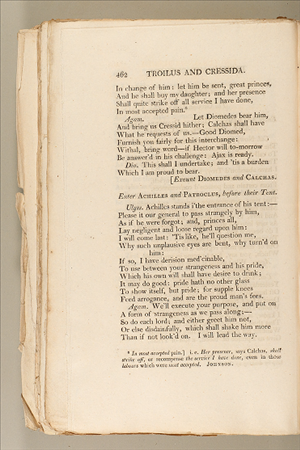 462 TROILUS AND CRESSIDA.
In change of him: let him be sent, great princes,
And he shall buy my daughter; and her presence
Shall quite strike off all service I have done,
In most accepted pain.⁸
Agam. Let Diomedes bear him,
And bring us Cressid hither; Calchas shall have
What he requests of us.—Good Diomed,
Furnish you fairly for this interchange:
Withal, bring word—if Hector will to-morrow
Be answer'd in his challenge: Ajax is ready.
Dio. This shall I undertake; and 'tis a burden
Which I am proud to bear.
[Exeunt DIOMEDES and CALCHAS.
Enter ACHILLES and PATROCLUS, before their Tent.
Ulyss. Achilles stands i'the entrance of his tent:—
Please it our general to pass strangely by him,
As if he were forgot; and, princes all,
Lay negligent and loose regard upon him:
I will come last: 'Tis like, he'll question me,
Why such unplausive eyes are bent, why turn'd on
him:
If so, I have derision med'cinable,
To use between your strangeness and his pride,
Which his own will shall have desire to drink;
It may do good: pride hath no other glass
To show itself, but pride; for supple knees
Feed arrogance, and are the proud man's fees.
Agam. We'll execute your purpose, and put on
A form of strangeness as we pass along;—
So do each lord; and either greet him not,
Or else disdainfully, which shall shake him more
Than if not look'd on. I will lead the way.
⁸ In most accepted pain.] i. e. Her presence, says Calchas, shall
strike off, or recompense the service I have done, even in those
labours which were most accepted. JOHNSON.